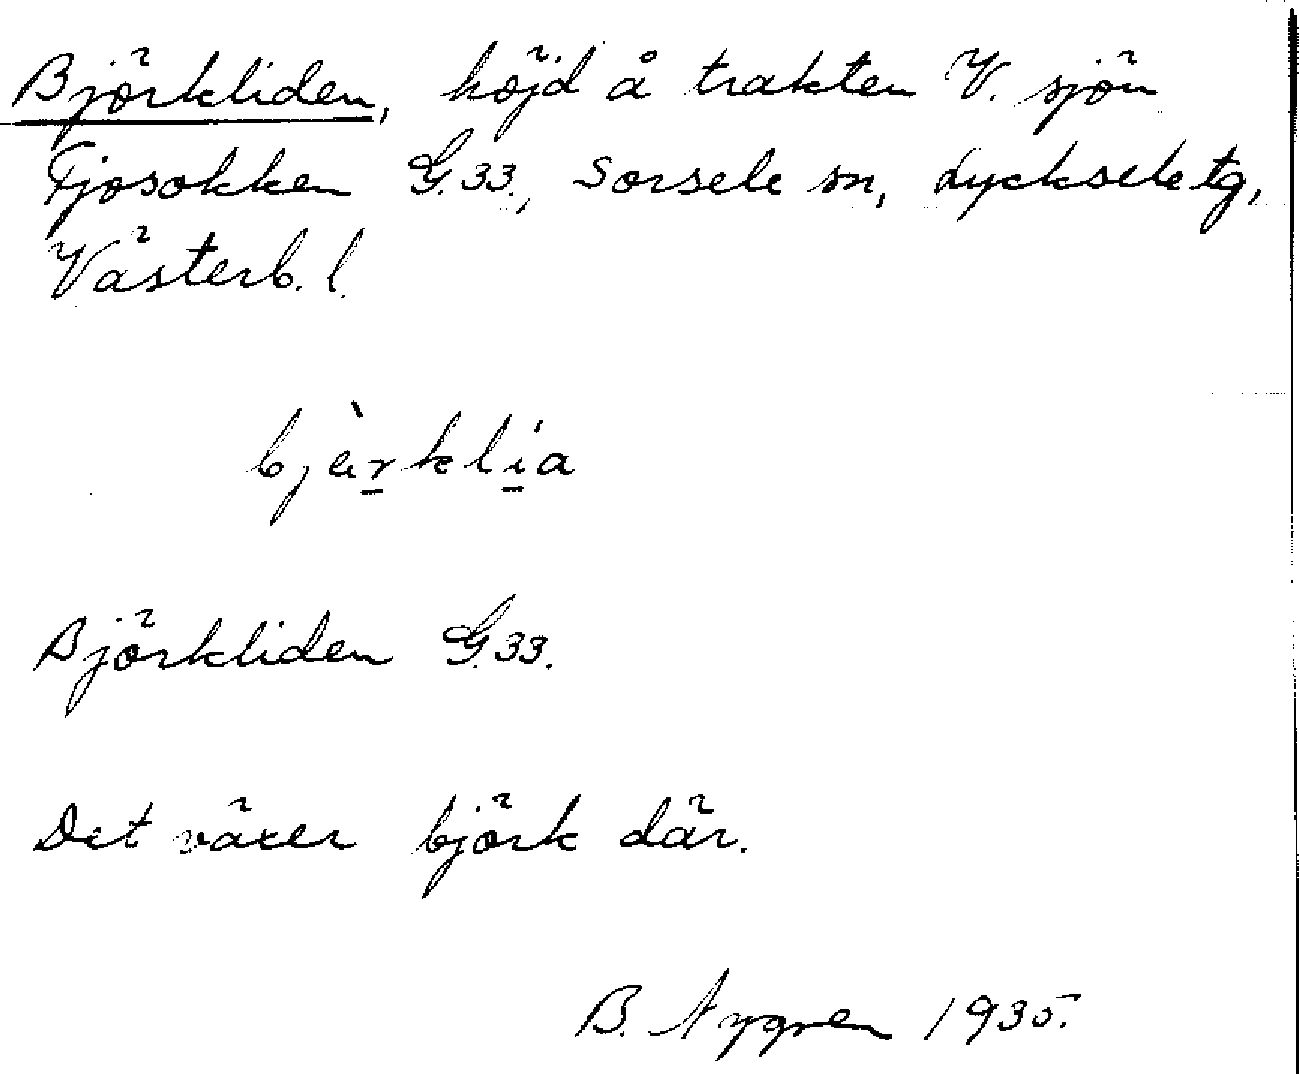 Björkliden, höjd å trakten V. sjön
Tjosokken G.33., Sorsele sn, Lycksele tg,
Västerb. l.
bjär̠kli̠a
Björkliden G.33.
Det växer björk där.
B. Nygren 1935.